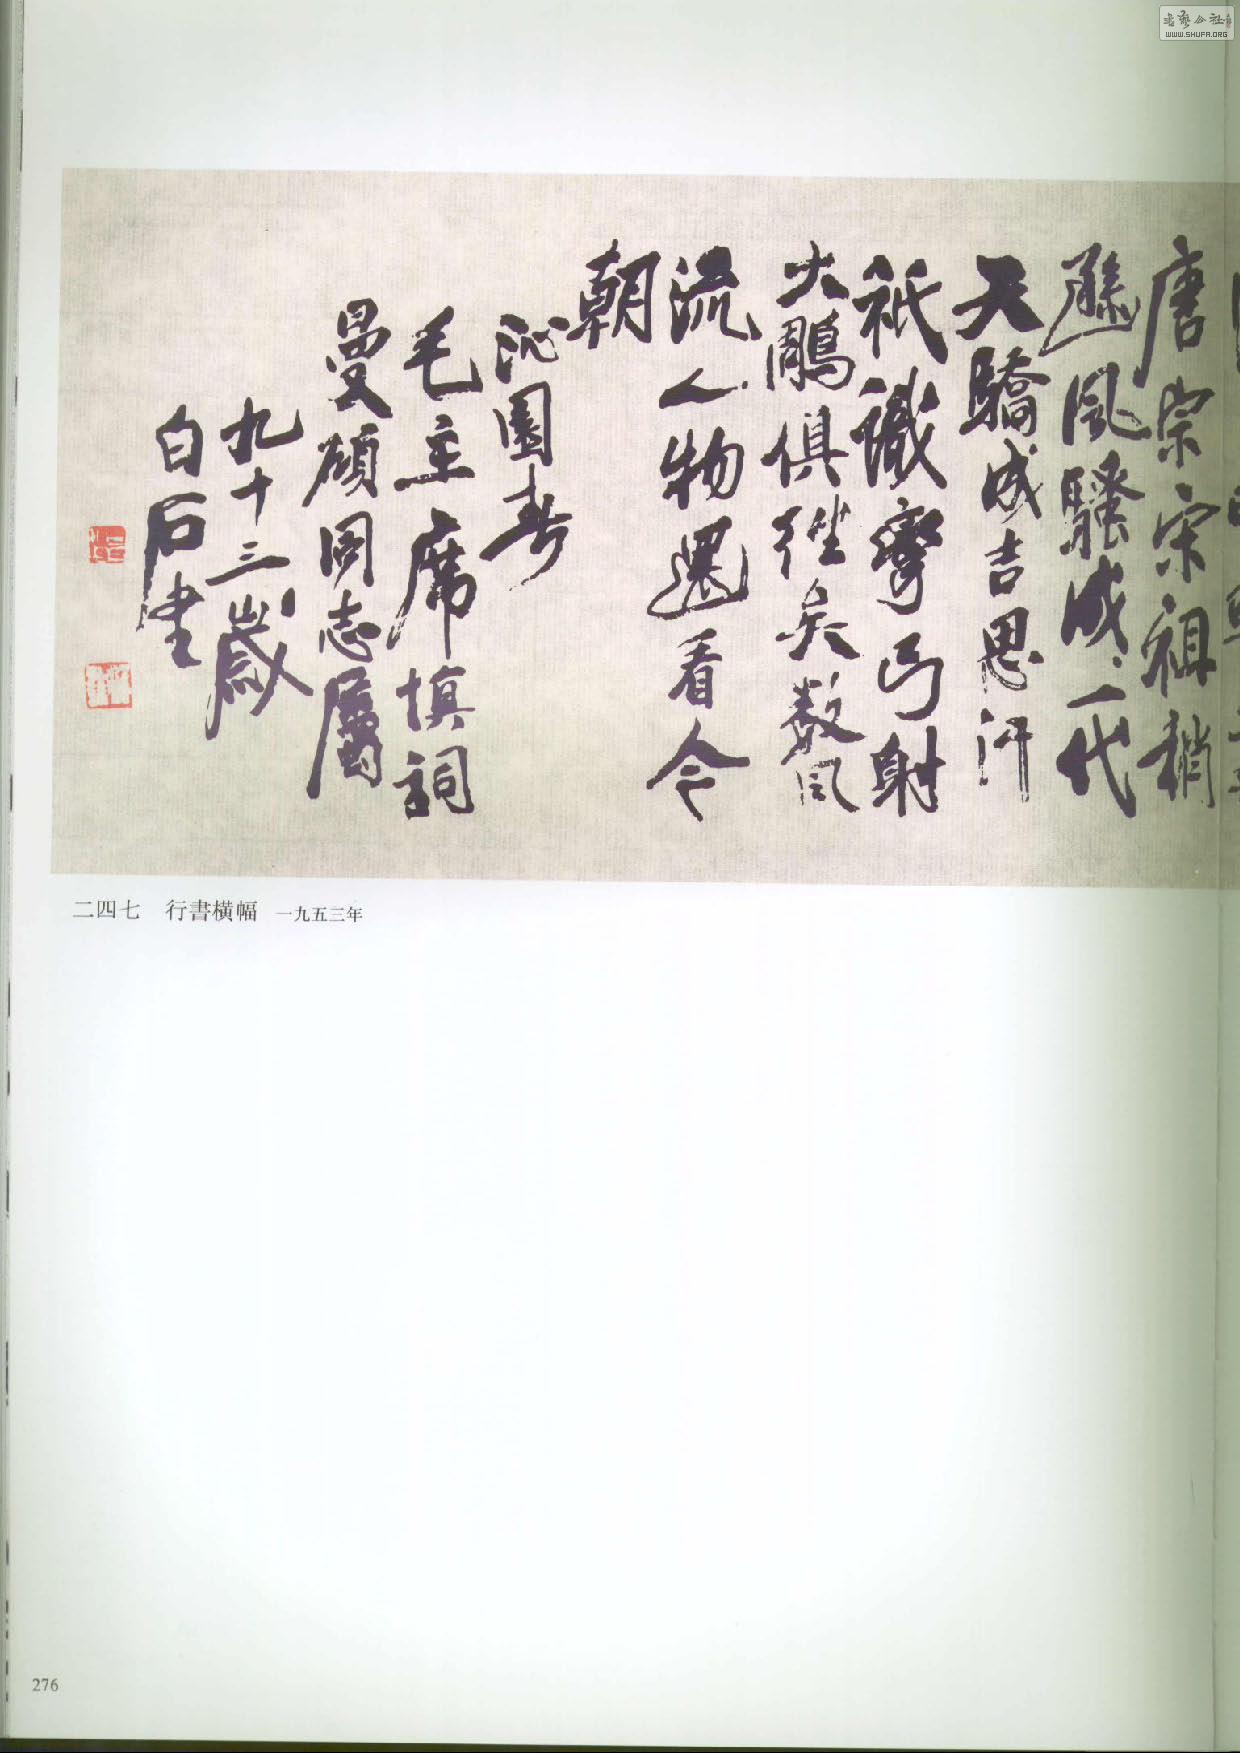 唐宗宋祖稍
遜風騷成、一代
天驕成吉思汗
祇識彎弓射
大鵰俱往矣數風
流人物還看今
朝
沁園春
毛主席填詞
曼碩同志屬
九十三歲
白石書
二四七 行書橫幅 一九五三年
276
WWW.SHUFA.ORG